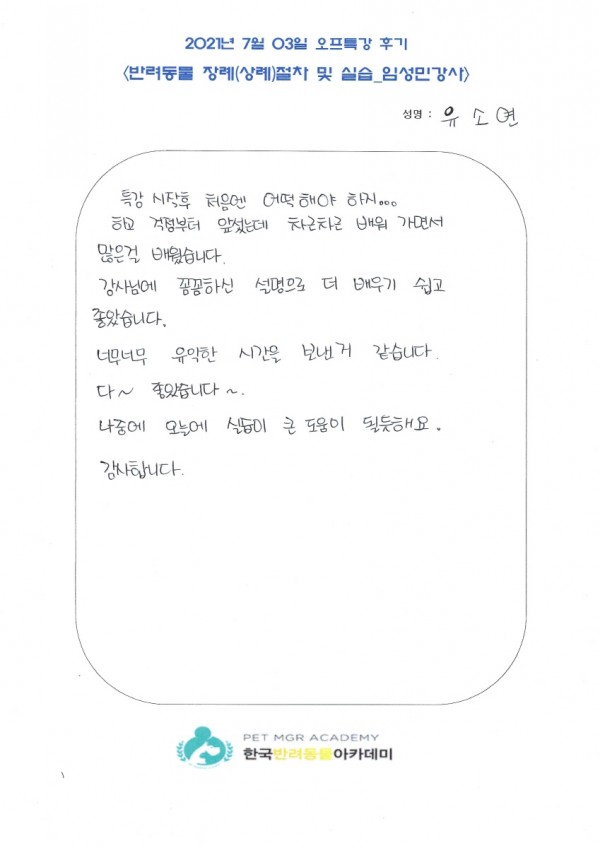 2021년 7월 03일 오프특강 후기
<반려동물 장례(상례)절차 및 실습_임성민강사>
성명 : 유소연
특강 시작후 처음엔 어떡해야 하지...
하고 걱정부터 앞섰는데 차근차근 배워 가면서
많은걸 배웠습니다.
강사님에 꼼꼼하신 설명으로 더 배우기 쉽고
좋았습니다.
너무너무 유익한 시간을 보낸거 같습니다.
다~ 좋았습니다~.
나중에 오늘에 실습이 큰 도움이 될듯해요.
감사합니다.
PET MGR ACADEMY
한국반려동물아카데미